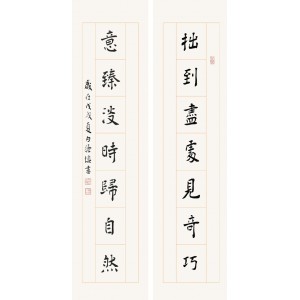 拙到盡處見奇巧
意臻深時歸自然
歲在戊戌夏月